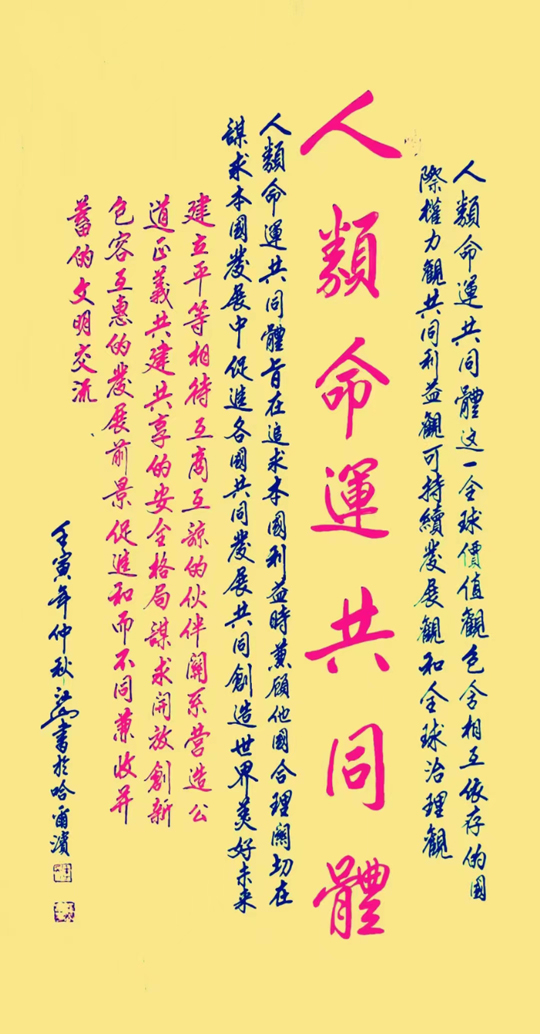 人類命運共同體这一全球價值觀包含相互依存的國
際權力觀共同利益觀可持續發展觀和全球治理觀
人類命運共同體
人類命運共同體旨在追求本國利益時兼顧他國合理關切在
謀求本國發展中促進各國共同發展共同創造世界美好未來
建立平等相待互商互諒的伙伴關系營造公
道正義共建共享的安全格局謀求開放創新
包容互惠的發展前景促進和而不同兼收并
蓄的文明交流
壬寅年仲秋江書於哈爾濱